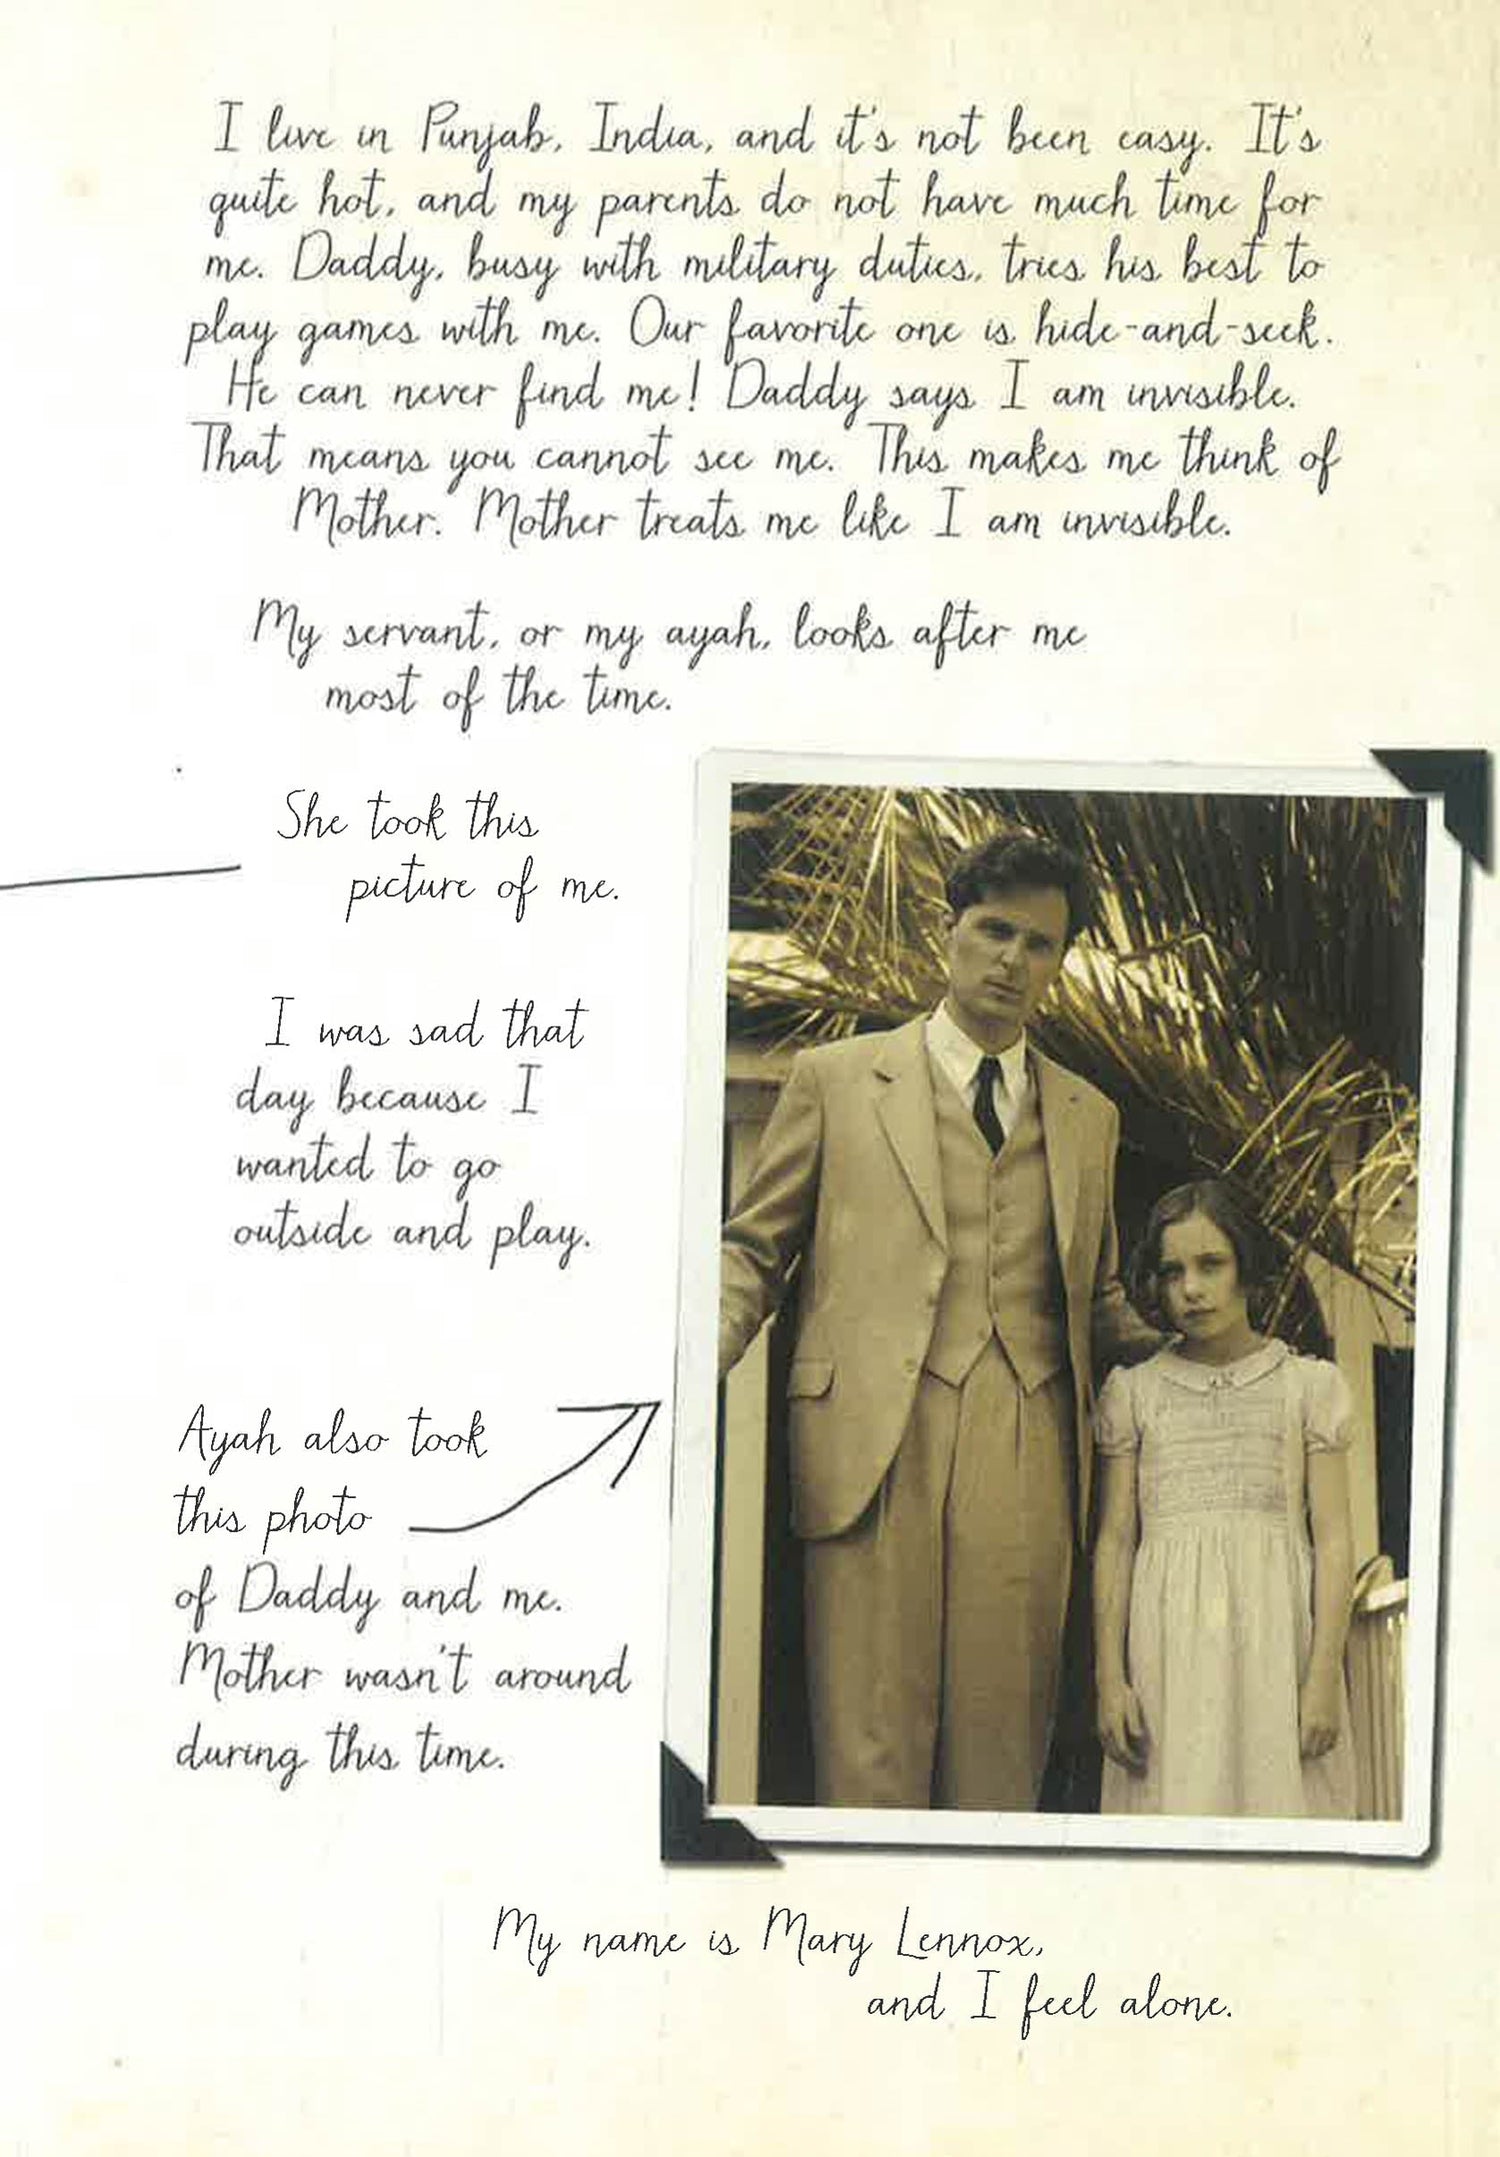 I live in Punjab, India, and it's not been easy. It's
quite hot, and my parents do not have much time for
me. Daddy, busy with military duties, tries his best to
play games with me. Our favorite one is hide-and-seek.
He can never find me! Daddy says I am invisible.
That means you cannot see me. This makes me think of
Mother. Mother treats me like I am invisible.
My servant, or my ayah, looks after me
most of the time.
She took this
picture of me.
I was sad that
day because I
wanted to go
outside and play.
Ayah also took
this photo
of Daddy and me.
Mother wasn't around
during this time.
My name is Mary Lennox,
and I feel alone.